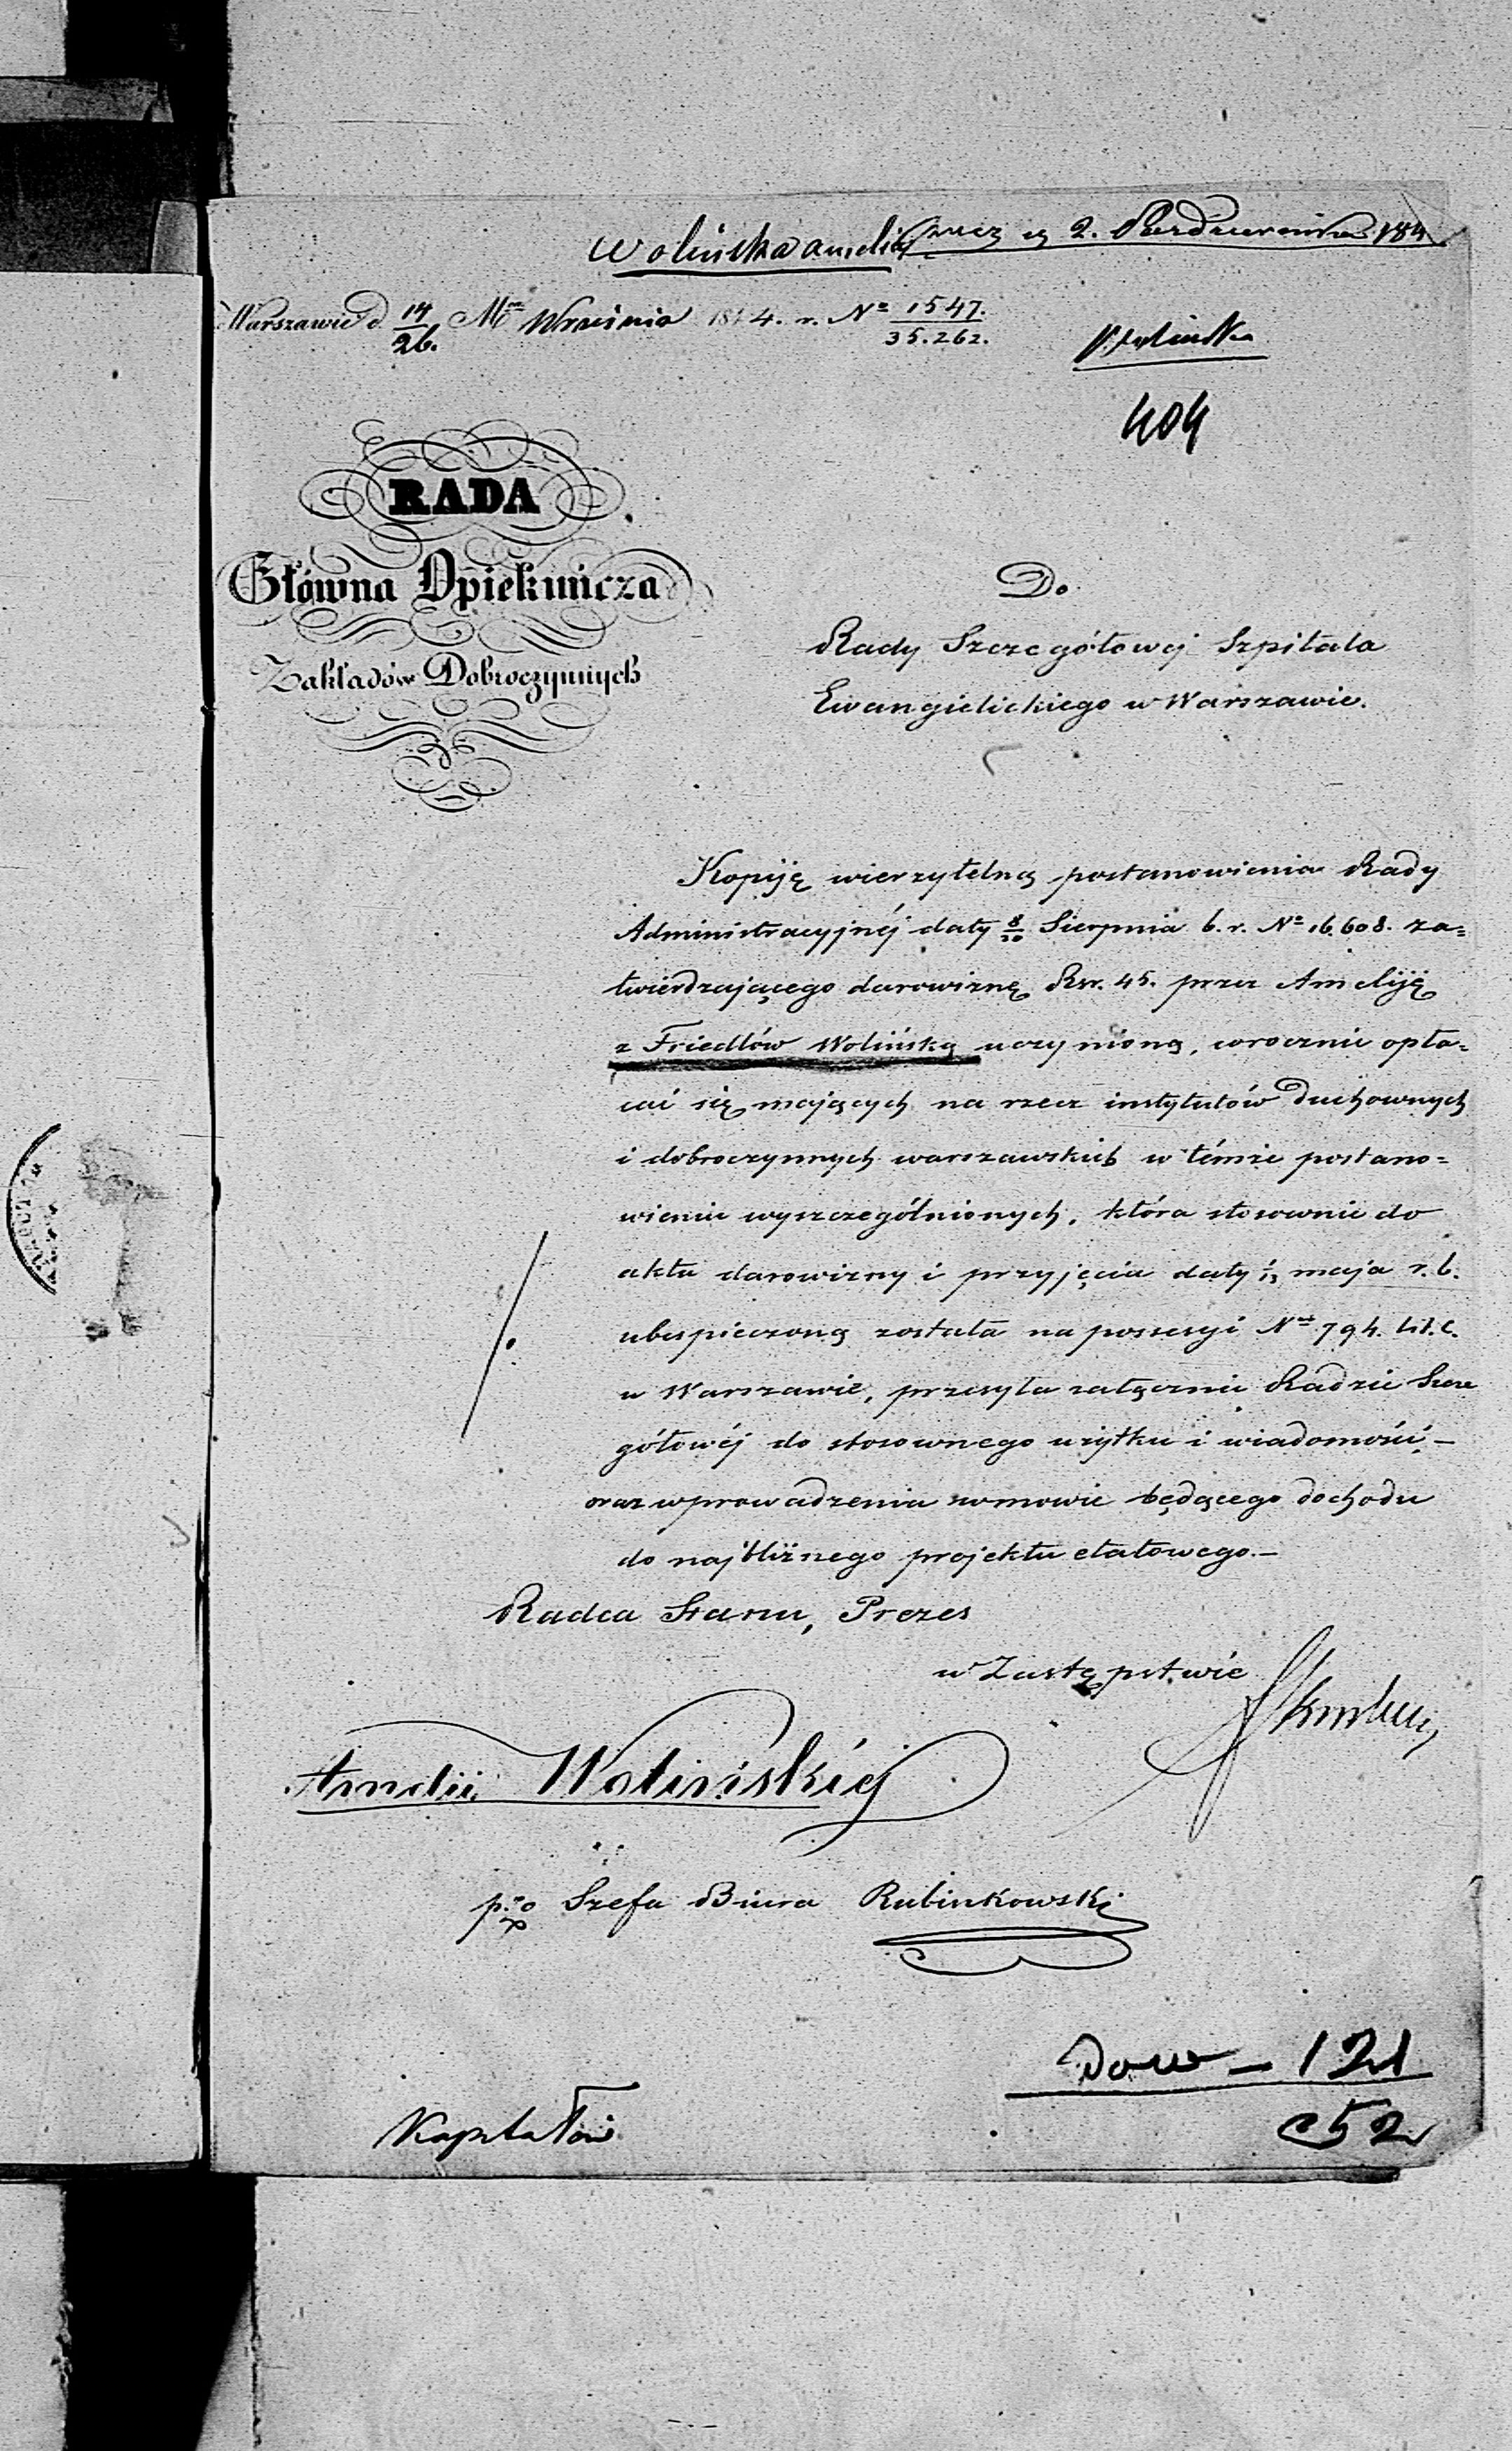 Wolińska Amelia prez. d. 2. Października 184
Warszawie d. 14/26. Mca Września 1844. r. No 1547./35.262.
Wolińska
404
RADA
Główna Opiekuńcza
Zakładów Dobroczynnych
Do
Rady Szczegółowej Szpitala
Ewangielickiego w Warszawie.
Kopiję wierzytelną postanowienia Rady
Administracyjnéj daty 8/20 Sierpnia b. r. No 16.608. za=
twierdzającego darowiznę Rsr. 45. przez Ameliję
z Friedlów Wolińską uczynioną, corocznie opła=
cać się mających na rzecz instytutów duchownych
i dobroczynnych warszawskich w témże postano=
wieniu wyszczególnionych, która stosownie do
aktu darowizny i przyjęcia daty 1/13 maja r. b.
ubespieczoną została na possesyi Nrm 794. Lit. C.
w Warszawie, przesyła załącznie Radzie Szcze
gółowéj do stosownego użytku i wiadomości, –
oraz wprowadzenia w mowie będącego dochodu
do najbliżnego projektu etatowego. –
Radca Stanu, Prezes
w Zastępstwie
Amelii Wolińskiéj
p. o. Szefa Biura Rubinkowski
Dow – 121
Kapitałów
52